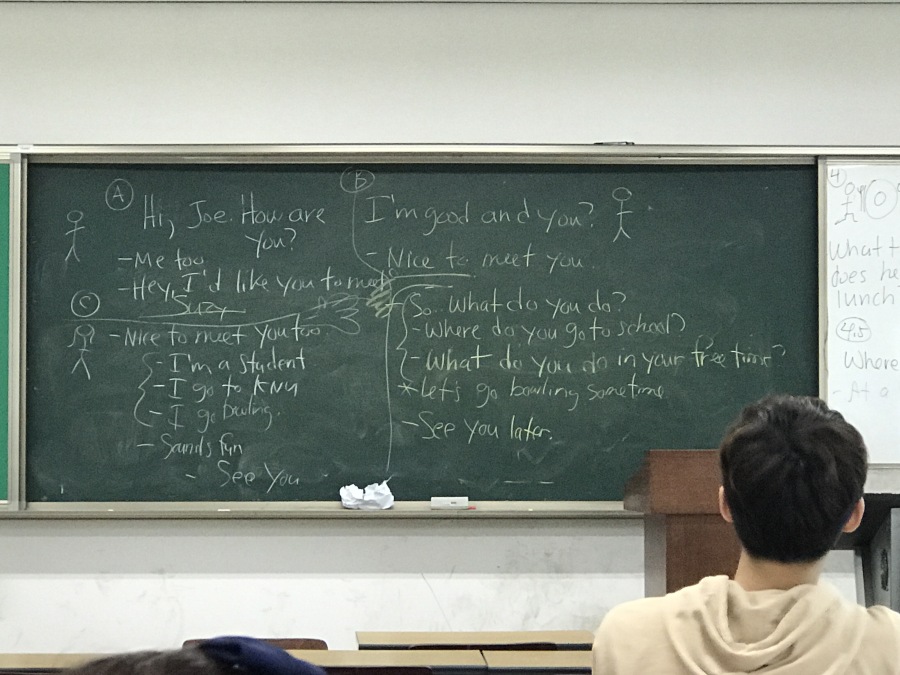 A
Hi, Joe. How are
you?
- Me too
- Hey, I'd like you to meet
Suzy
C
- Nice to meet you too
- I'm a student
- I go to KNU
- I go bowling.
- Sounds fun
- See You
B
I'm good and you?
- Nice to meet you
- So.. What do you do?
- Where do you go to school?
- What do you do in your free time?
* Let's go bowling sometime
- See you later.
4
What
does he
lunch
4.5
Where
- At a